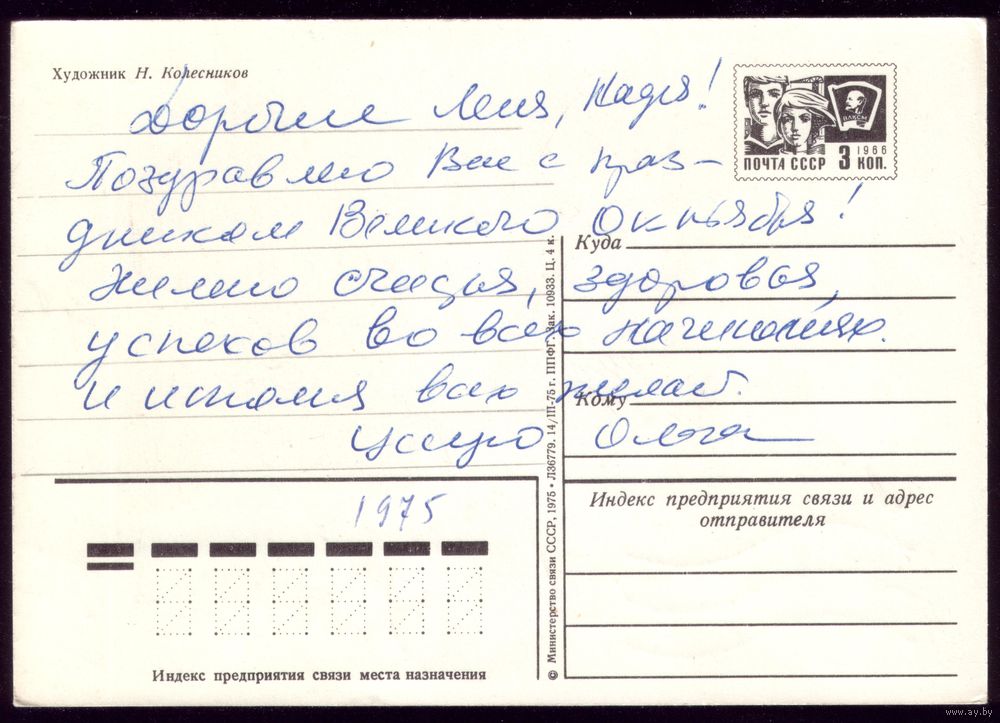 Художник Н. Колесников
Дорогие Леня, Надя!
Поздравляю Вас с праз-
дником Великого Октября!
Желаю счастья, здоровья,
успехов во всех начинаниях.
и исполня всех желаний.
Целую Ольга
1975
ВЛКСМ
1966
ПОЧТА СССР 3 КОП.
Куда
Кому
Индекс предприятия связи и адрес
отправителя
Индекс предприятия связи места назначения
© Министерство связи СССР, 1975 • Л36779. 14/III-75 г. ППФГ. Зак. 10933. Ц. 4 к.
www.ay.by